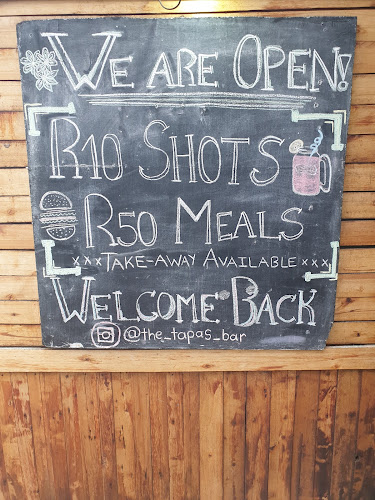 WE ARE OPEN!
R10 SHOTS
R50 MEALS
xxx TAKE-AWAY AVAILABLE xxx
WELCOME BACK
@the_tapas_bar